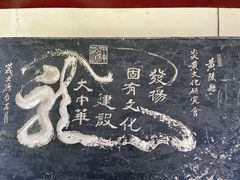 黄陵縣
炎黄文化研究會
發揚
固有文化
建設
大中華